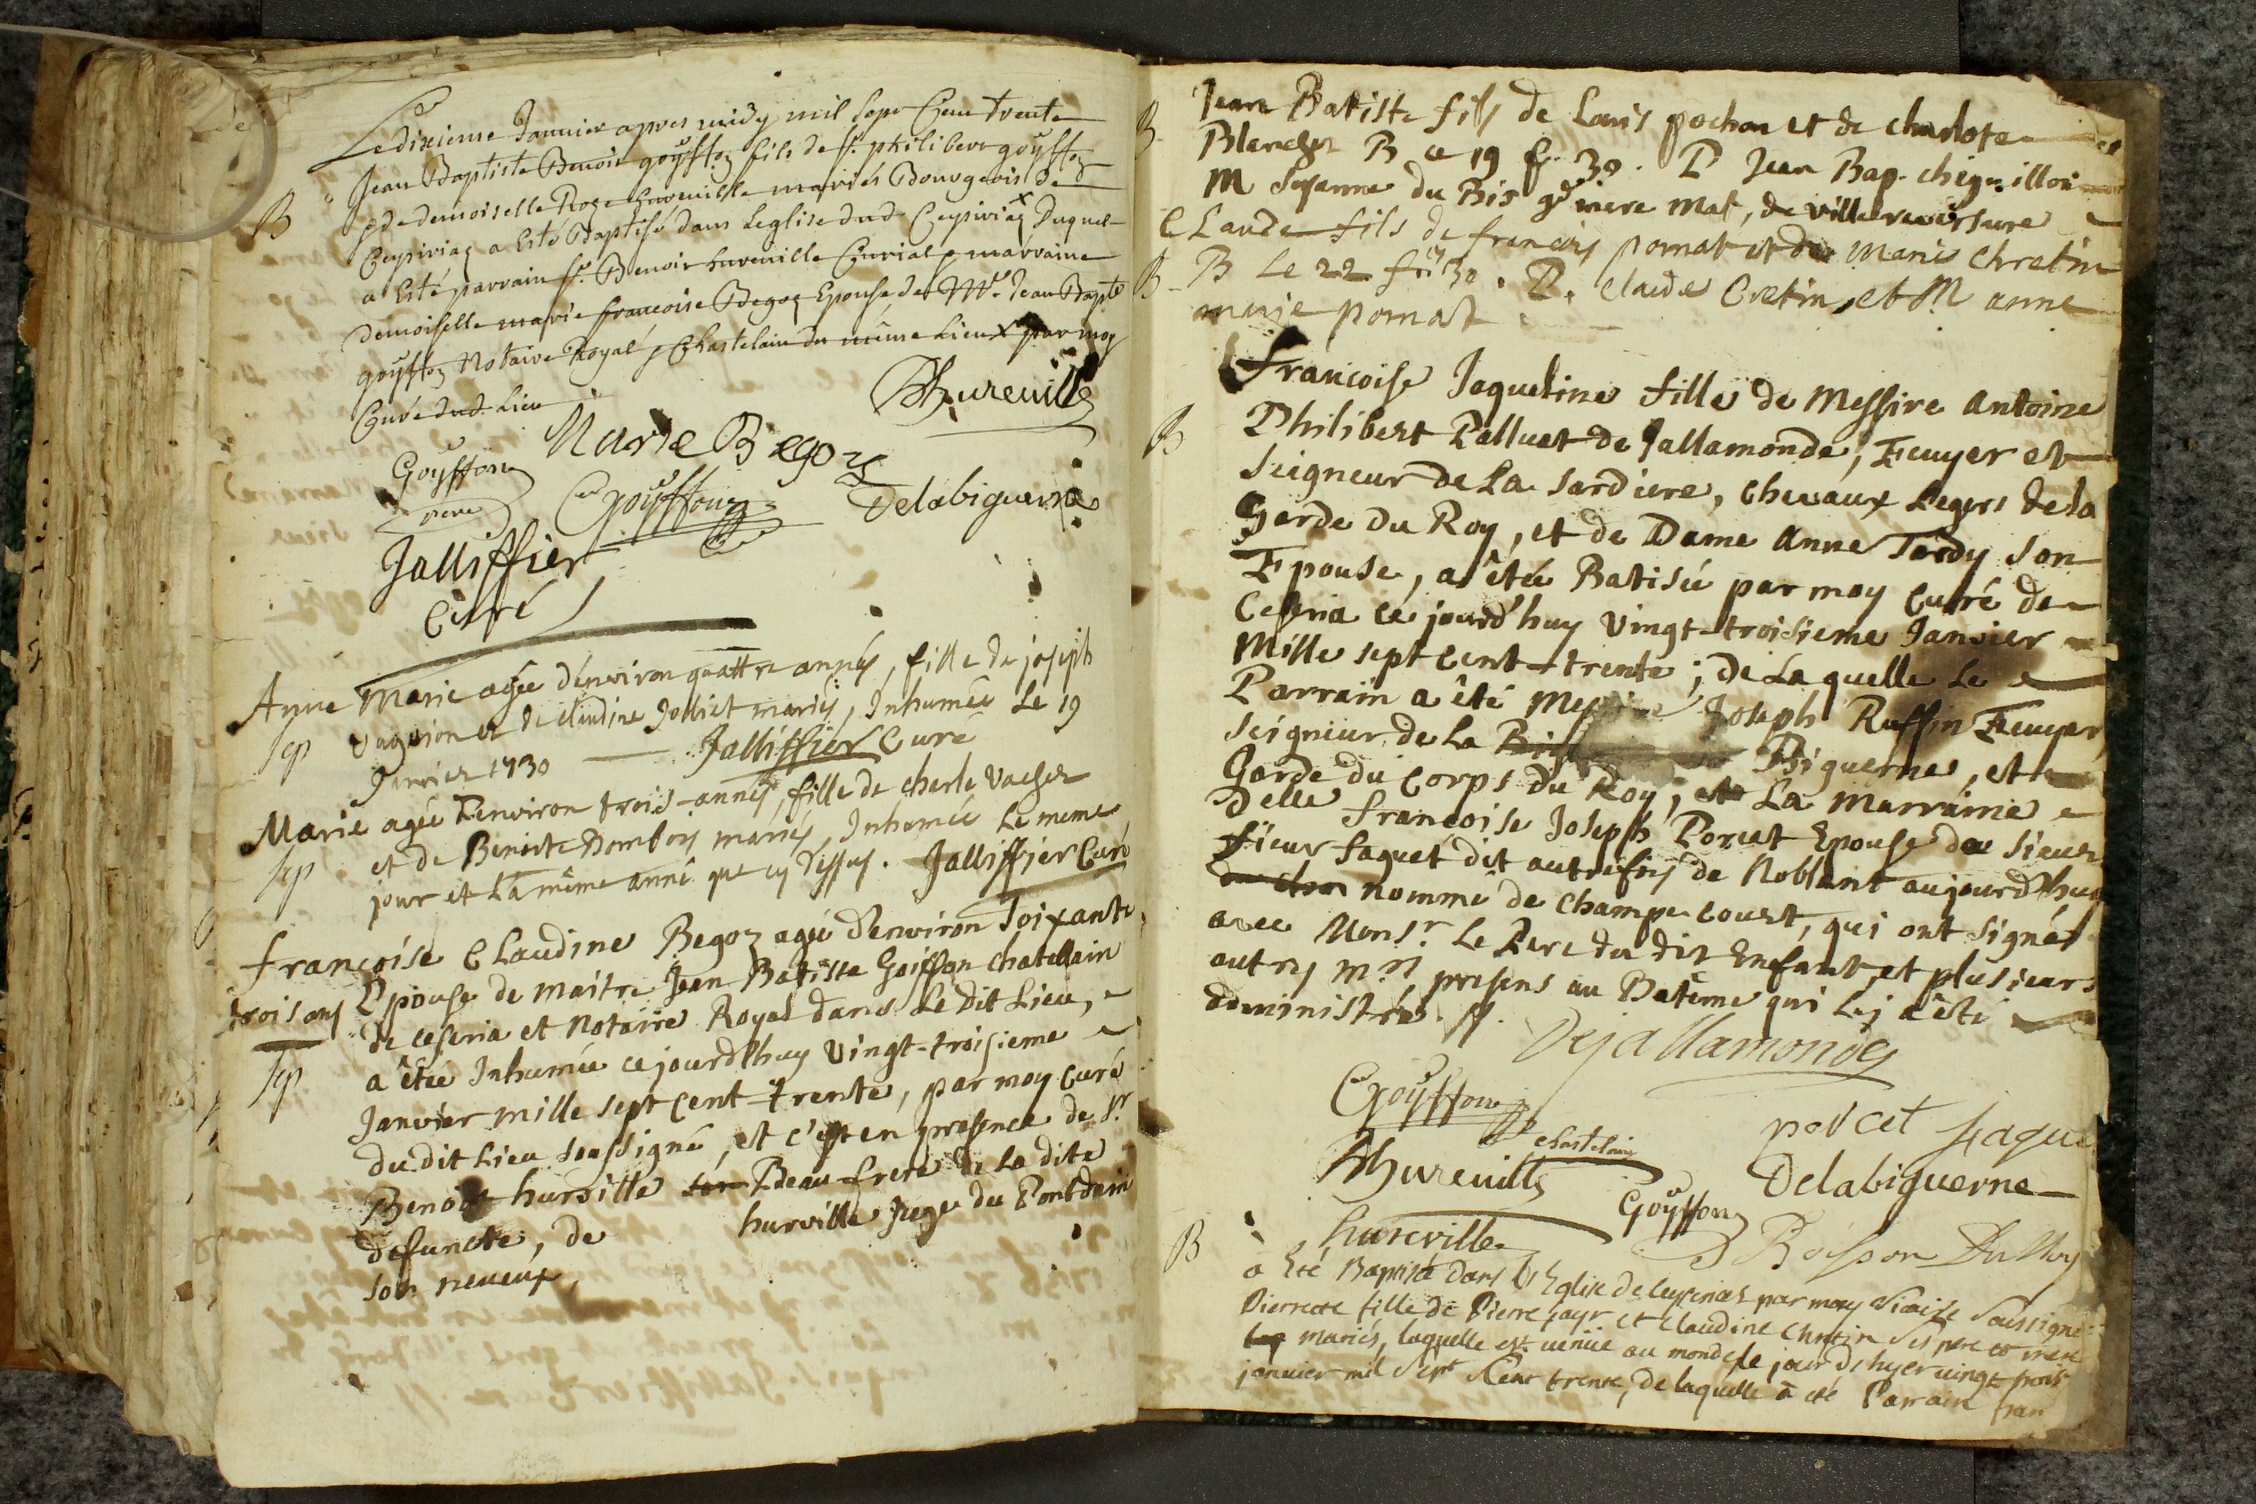 Le dixieme Janvier apres midy mil Sept Cent trente
Jean Baptiste Benoit goyffon fils de Sr. philibert goÿffon
B
& de demoiselle Roze hureville mariés Bourgeois de
Ceysiriaz a Esté Baptisé dans Leglise dud. Ceysiriaz Duquel
a Esté parrain Sr. Benoit hureville Curial & marraine
demoiselle marie francoise Begoz Epouse de Mre. Jean Bapte
goÿffon Notaire Royal & Chastelain du même Lieu par moy
Curé dud. Lieu
BHureville
Marie Begoz
Goÿffon
pere
Goÿffon
Delabiguerne
Jalliffier
Curé
Anne Marie agée d'environ quattre années, fille de joseph
Sep
et de Claudine Jolliet mariés, Inhumée Le 19
Janvier 1730 Jalliffier Curé
Marie agée D'environ trois années, fille de charle Vacher
Sep
et de Benoite Dombois mariés, Inhumée Le meme
jour et La même anné que cy dessus. Jalliffier Curé
francoise Claudine Begoz agée d'environ Soixante
trois ans Epouse de maitre Jean Batiste Goiffon chatellain
de ceseria et Notaire Royal dans Le dit Lieu,
Sep
a êtée Inhumée ce jourd'huy Vingt-troisieme
Janvier mille sept cent-trente, par moy curé
du dit Lieu soussigné, et c'est en presence de Sr.
Benoit hurville son Beau frere de La dite
defuncte, de hurville Juge du Pontdain
son neveux
Jean Batiste fils de Louis pochon et de charlote
B
Blanchet B ce 19 fr. 30. P Jean Bap. chiquillon
M Susanne du Bis gd mere mat, de villereversure
Claude fils de francois pomat et de Marie Chretin
B
B Le 22 30. P. Claude Cretin, et M anne
marie pomat
Francoise Jaqueline fille de Messire Antoine
B
Philibert Palluat de Jallamonde, Ecuyer et
Seigneur de La Sardiere, chevaux Legers de la
Garde du Roy, et de Dame Anne Tardy son
Epouse, a êtée Batisée par moy curé de
Ceseria ce jourd'huy Vingt-troisieme Janvier
Mille sept cent-trente; de Laquelle Le
Parrain a êté Messire Joseph Ruffin Ecuyer,
Seigneur de La Biguerne, et
Garde du Corps du Roy; et La Marraine
Delle Francoise Joseph Porcet Epouse du sieur
sieur Jaquet dit autrefois de Noblant aujourd'huy
nommé de Champ court, qui ont signés
avec Monsr. Le Pere du dit Enfant, et plusieurs
autres mrs, presens au Batême qui Lui a êté
administré.
Dejallamonde
Goÿffon
Chastelain
porcet Jaque
BHureville
Delabiguerne
Goÿffon
hureville
B
a Eté Baptisé dans L'Eglise de Ceyseriat par moy Vicaire Soussigné
Pierrette fille de Pierre Jayr et Claudine Chretin ses pere et mere
mariés, laquelle est venüe au monde le jour d'hyer vingt trois
janvier mil Sept Cent trente, de laquelle à été Parrain fran